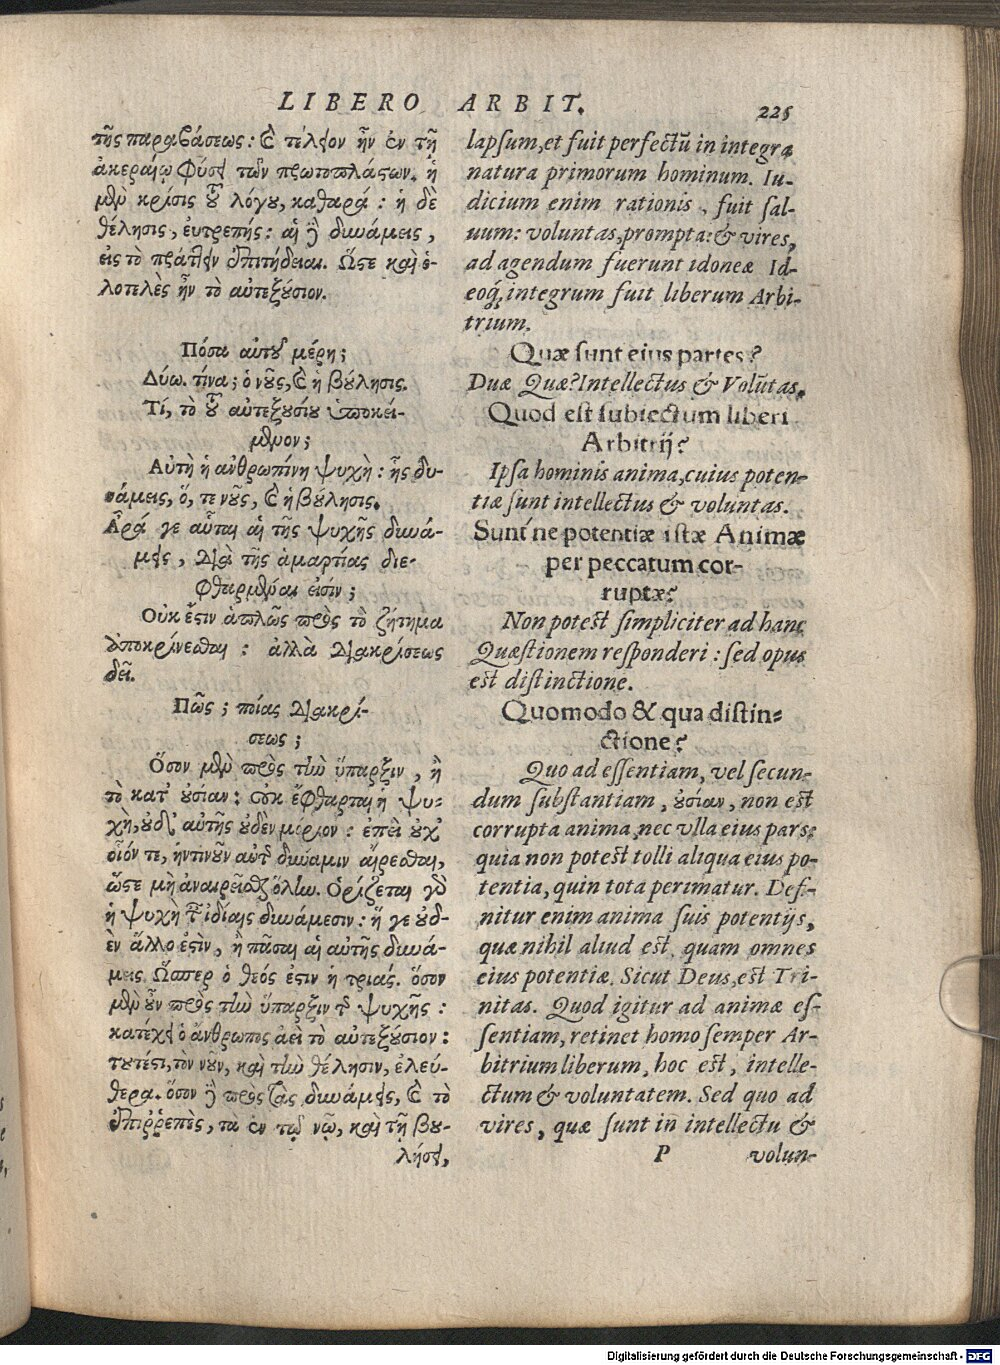 LIBERO ARBIT. 225
τῆς παραβάσεως: καὶ τέλειον ἦν ἐν τῇ
ἀκεραίῳ φύσει τῶν πρωτοπλάστων. ἡ
μὲν κρίσις τοῦ λόγου, καθαρά: ἡ δὲ
θέλησις, εὐτρεπής: αἱ δὲ δυνάμεις,
εἰς τὸ πράττειν ἐπιτήδειαι. Ὥστε καὶ ὁ-
λοτελὲς ἦν τὸ αὐτεξούσιον.
Πόσα αὐτοῦ μέρη;
Δύω. τίνα; ὁ νοῦς, καὶ ἡ βούλησις.
Τί, τὸ τοῦ αὐτεξουσίου ὑποκεί-
μενον;
Αὐτὴ ἡ ἀνθρωπίνη ψυχὴ: ἧς δυ-
νάμεις, ὅ, τε νοῦς, καὶ ἡ βούλησις.
Ἆρά γε αὗται αἱ τῆς ψυχῆς δυνά-
μεις, διὰ τῆς ἁμαρτίας διε-
φθαρμέναι εἰσίν;
Οὐκ ἔστιν ἁπλῶς πρὸς τὸ ζήτημα
ἀποκρίνεσθαι: ἀλλὰ διακρίσεως
δεῖ.
Πῶς; ποίας διακρί-
σεως;
Ὅσον μὲν πρὸς τὴν ὕπαρξιν, ἢ
τὸ κατ' οὐσίαν: οὐκ ἔφθαρται ἡ ψυ-
χὴ, οὐδ' αὐτῆς οὐδὲν μόριον: ἐπεὶ οὐχ'
οἷόν τε, ἡντινοῦν αὐτῆς δύναμιν αἵρεσθαι,
ὥστε μὴ ἀναιρεῖσθαι ὅλην. Ὁρίζεται γὰρ
ἡ ψυχὴ ταῖς ἰδίαις δυνάμεσιν: ἥ γε οὐδ-
ὲν ἄλλο ἐστὶν, ἢ πᾶσαι αἱ αὐτῆς δυνά-
μεις. Ὥσπερ ὁ θεός ἐστιν ἡ τριάς. ὅσον
μὲν οὖν πρὸς τὴν ὕπαρξιν τῆς ψυχῆς:
κατέχει ὁ ἄνθρωπος ἀεὶ τὸ αὐτεξούσιον:
τουτέστι, τὸν νοῦν, καὶ τὴν θέλησιν, ἐλευ-
θέρα. ὅσον δὲ πρὸς τὰς δυνάμεις, καὶ τὸ
ἐπιῤῥεπὲς, τὰ ἐν τῷ νῷ, καὶ τῇ βου-
λήσει,
lapsum, et fuit perfectũ in integra
natura primorum hominum. Iu-
dicium enim rationis, fuit sal-
uum: voluntas, prompta: & vires,
ad agendum fuerunt idoneæ Id-
eoq́, integrum fuit liberum Arbi-
trium.
Quæ sunt eius partes?
Duæ Quæ? Intellectus & Volũtas.
Quod est subiectum liberi
Arbitrij?
Ipsa hominis anima, cuius poten-
tiæ sunt intellectus & voluntas.
Sunt ne potentiæ istæ Animæ
per peccatum cor-
ruptæ?
Non potest simpliciter ad hanc
Quæstionem responderi: sed opus
est distinctione.
Quomodo & qua distin-
ctione?
Quo ad essentiam, vel secun-
dum substantiam, οὐσίαν, non est
corrupta anima, nec vlla eius pars:
quia non potest tolli aliqua eius po-
tentia, quin tota perimatur. Defi-
nitur enim anima suis potentijs,
quæ nihil aliud est, quam omnes
eius potentiæ. Sicut Deus, est Tri-
nitas. Quod igitur ad animæ es-
sentiam, retinet homo semper Ar-
bitrium liberum, hoc est, intelle-
ctum & voluntatem. Sed quo ad
vires, quæ sunt in intellectu &
P volun-
Digitalisierung gefördert durch die Deutsche Forschungsgemeinschaft - DFG